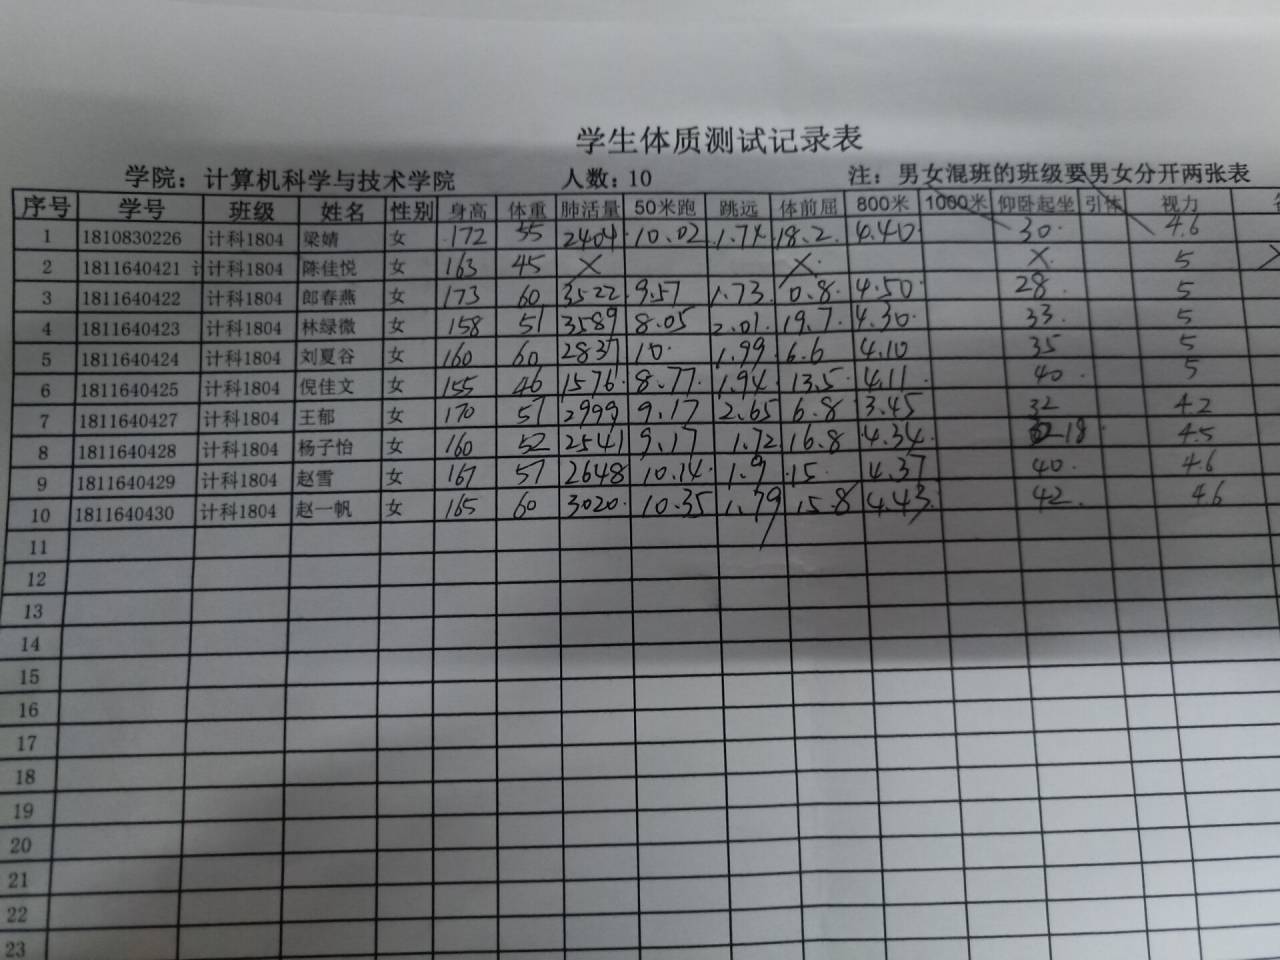 学生体质测试记录表
学院：计算机科学与技术学院 人数：10 注：男女混班的班级要男女分开两张表
序号 学号 班级 姓名 性别 身高 体重 肺活量 50米跑 跳远 体前屈 800米 1000米 仰卧起坐 引体 视力
1 1810830226 计科1804 梁婧 女 172 55 2404 10.02 1.74 18.2 4.40 30 4.6
2 1811640421 计科1804 陈佳悦 女 163 45 X X X 5
3 1811640422 计科1804 郎春燕 女 173 60 3522 9.57 1.73 0.8 4.50 28 5
4 1811640423 计科1804 林绿微 女 158 51 3589 8.05 2.01 19.7 4.30 33 5
5 1811640424 计科1804 刘夏谷 女 160 60 2837 10 1.99 6.6 4.10 35 5
6 1811640425 计科1804 倪佳文 女 155 46 1576 8.77 1.94 13.5 4.11 40 5
7 1811640427 计科1804 王郁 女 170 57 2999 9.17 2.65 6.8 3.45 32 4.2
8 1811640428 计科1804 杨子怡 女 160 52 2541 9.17 1.72 16.8 4.34 18 4.5
9 1811640429 计科1804 赵雪 女 167 57 2648 10.14 1.9 15 4.37 40 4.6
10 1811640430 计科1804 赵一帆 女 165 60 3020 10.35 1.79 15.8 4.43 42 4.6
11
12
13
14
15
16
17
18
19
20
21
22
23